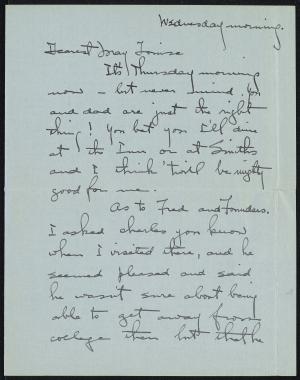 Wednesday morning.
Dearest May Louise
It's Thursday morning
now - but never mind. You
and dad are just the right
thing! You bet you I'll dine
at the Inn or at Smiths
and I think 'twill be mighty
good for me.
As to Fred and Founders.
I asked Charles you know
when I visited there, and he
seemed pleased and said
he wasn't sure about being
able to get away from
college then but that he